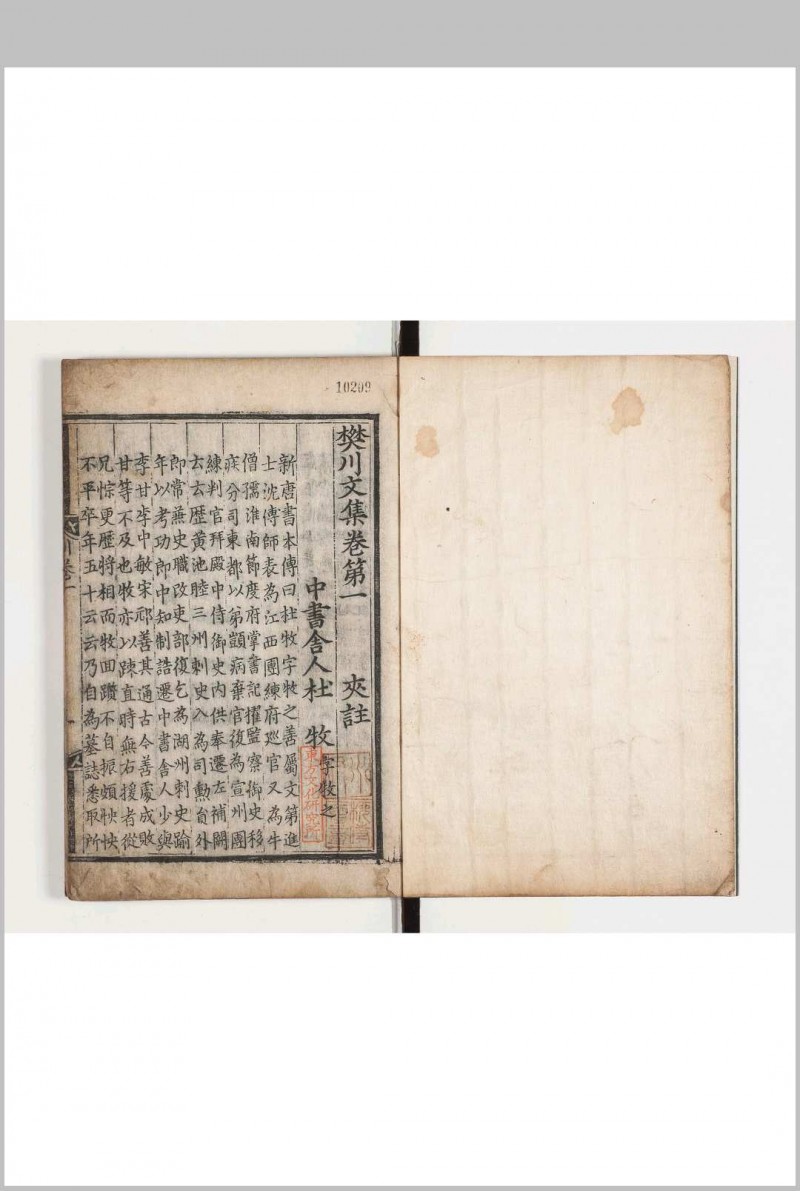 10209
樊川文集卷第一 夾註
中書舍人杜 牧 字牧之
新唐書本傳曰杜牧字牧之善屬文第進
士沈傳師表為江西團練府巡官又為牛
僧孺淮南節度府掌書記擢監察御史移
疾分司東都以弟顗病棄官復為宣州團
練判官拜殿中侍御史內供奉遷左補闕
云云歷黃池睦三州刺史入為司勲貟外
郎常兼史職改吏部復乞為湖州刺史踰
年以考功郎中知制誥遷中書舍人少與
李甘李中敏宋祁善其通古今善處成敗
甘等不及也牧亦以踈直時無右援者從
兄悰更歷將相而牧回躓不自振頗怏怏
不平卒年五十云云乃自為墓誌悉取所
川卷一
一
東方文化研究所